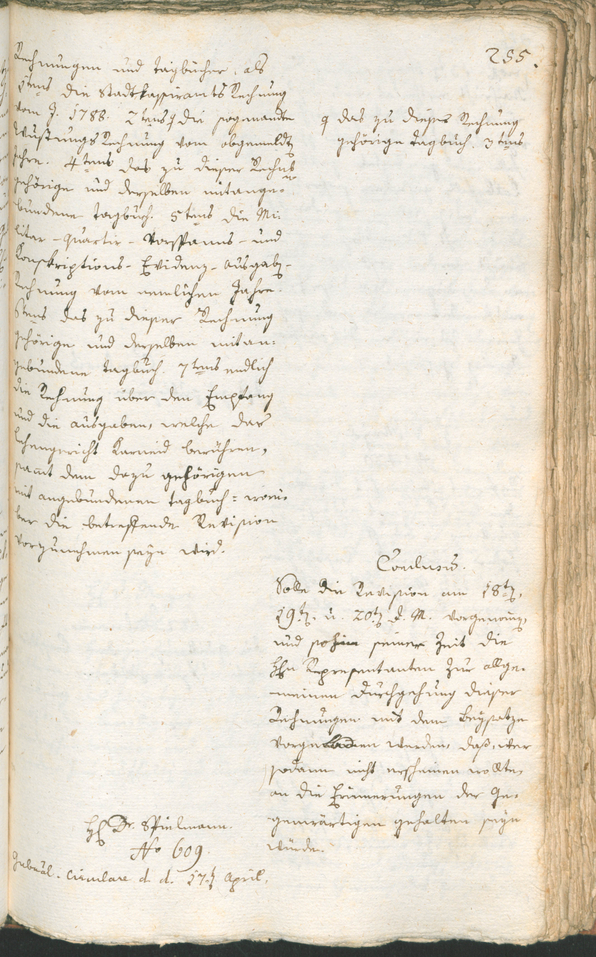 255.
Rechnungen und tagbücher, als
1tens die Stadtkassieramts Rechnung
vom J. 1788. 2tens q die sogenannte
Rechnung vom obgemeldt
Jahre. 4tens das zu dieser Rechnung
gehörige und derselben mitange-
bundene tagbuch. 5tens die Mi-
litar-Quartir-Vorspanns- und
Konskriptions-Evidenz-ausgab-
Rechnung vom nemlichen Jahre.
6tens das zu dieser Rechnung
gehörige und derselben mitan-
gebundene tagbuch. 7tens endlich
die Rechnung über den Empfang
und die ausgaben, welche das
Lehengericht Karneid berühren,
samt dem dazu gehörigen
mit angebundenen tagbuch: worü-
ber die betreffende Revision
vorzunehmen seyn wird.
q das zu dieser Rechnung
gehörige tagbuch. 3tens
Conclusum.
Solle die Revision am 18tn,
19tn. u. 20tn d. M. vorgenommen,
und sohin seiner Zeit die
Hhn Representanten zur allge-
meinen Durchgehung dieser
Rechnungen mit dem Beysatze
vorgeladen werden, daß, wer
sodann nicht erscheinen wollte,
an die Erinnerungen der Ge-
genwärtigen gehalten seyn
würde.
H Dr. Spielmann.
No 609
Gubernial-Circulare d. d. 17tn April.